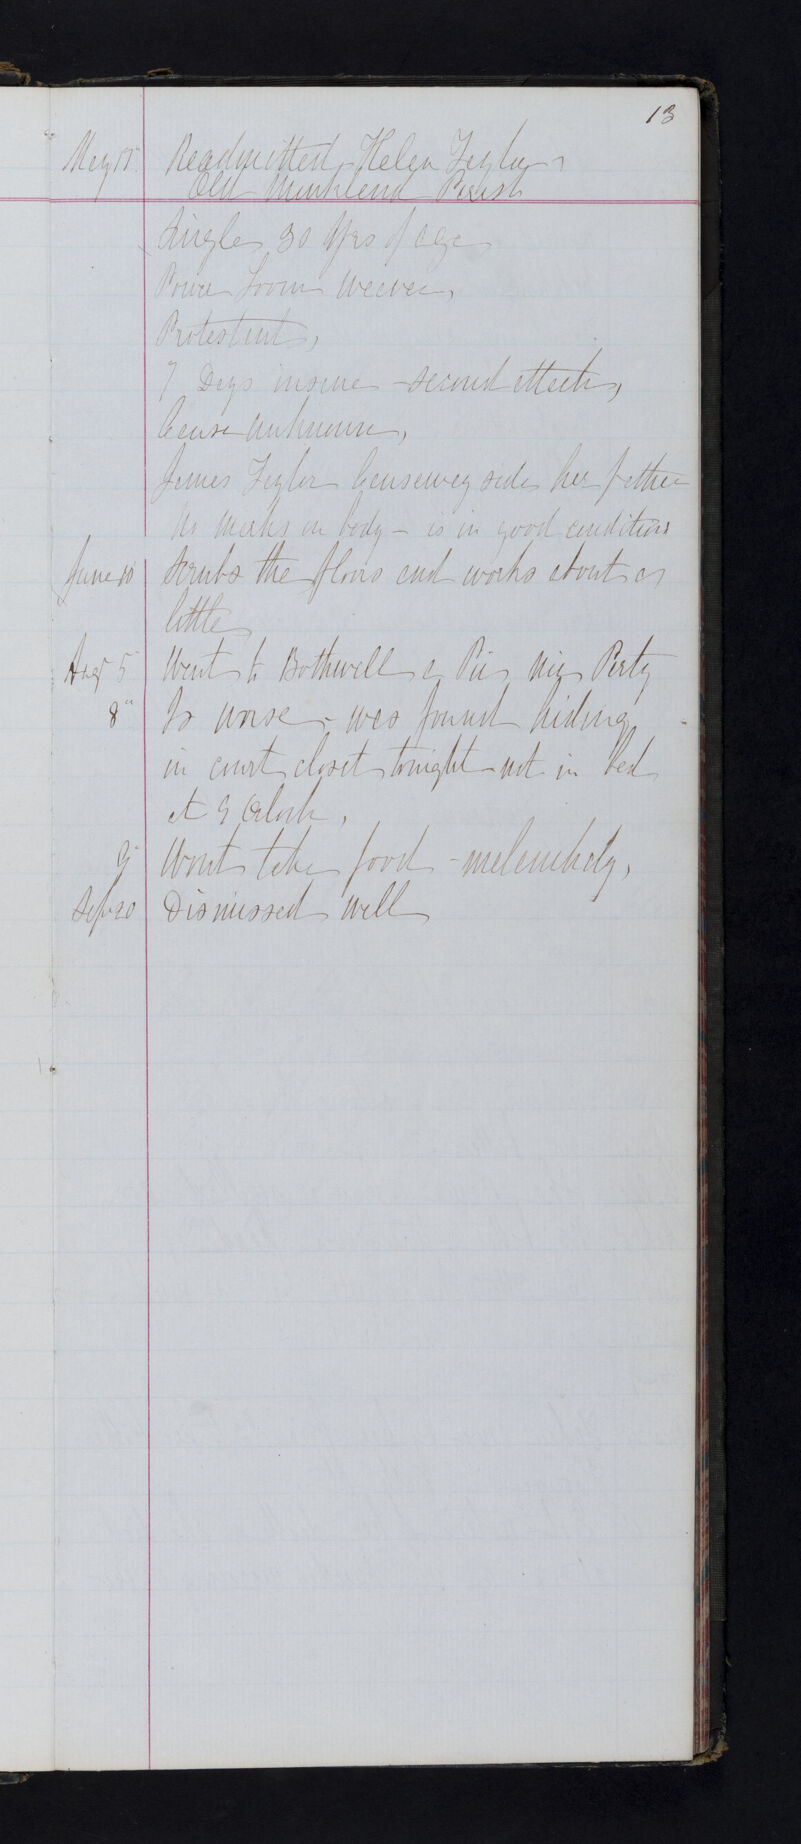 13
May 15 Readmitted Helen Taylor
Old Monkland Parish
Single 30 Yrs of age
Power Loom Weaver,
Protestant,
7 Days insane - second attack,
Cause unknown,
James Taylor Causewayside her father
No marks on body - is in good condition
June 10 Scrubs the floors and works about a
little
Augt 5 Went to Bothwell a Pic nic Party
8" Is worse - was found hiding
in court closet tonight - not in bed
at 9 Oclock,
9" Wont take food - melancholy,
Sep 20 Dismissed Well